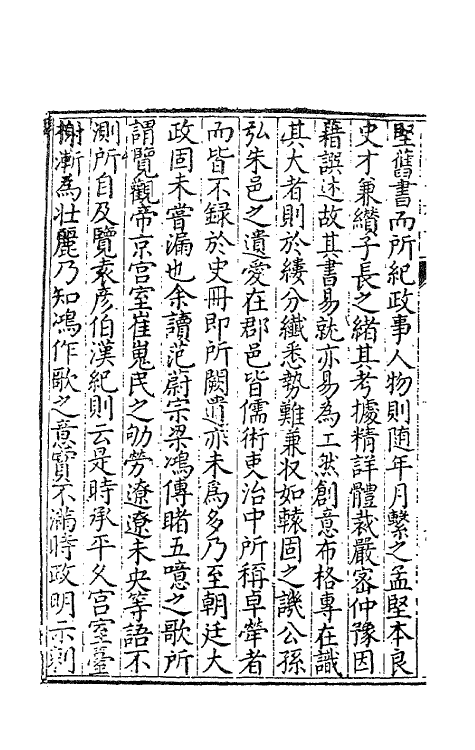 堅舊書而所紀政事人物則随年月繫之孟堅本良
史才兼纉子長之緒其考據精詳體裁嚴宻仲豫因
藉譔述故其書易就亦易為工然創意布格專在識
其大者則於縷分纖悉勢難兼収如轅固之譏公孫
弘朱邑之遺愛在郡邑皆儒術吏治中所稱卓犖者
而皆不録於史冊即所闕遺亦未為多乃至朝廷大
政固未嘗漏也余讀范蔚宗梁鴻傳睹五噫之歌所
謂覽觀帝京宫室崔嵬民之劬勞遼遼未央等語不
測所自及覽袁彦伯漢紀則云是時承平久宫室臺
榭漸為壯麗乃知鴻作歌之意實不滿時政明示刺